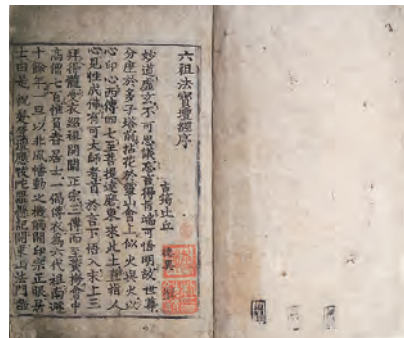 六祖法寶壇經序
古筠比丘 德異 撰
妙道虛玄不可思議忘言得旨端可悟明故世尊
分座於多子塔前拈花於靈山會上似火與火以
心印心西傳四七至菩提達磨東來此土直指人
心見性成佛有可大師者首於言下悟入末上三
拜得髓受衣紹祖開闡正宗三傳而至黃梅會中
高僧七百惟負舂居士一偈傳衣為六代祖南遯
十餘年一旦以非風幡動之機觸開印宗正眼居
士由是祝髮登壇應跋陀羅懸記開東山法門